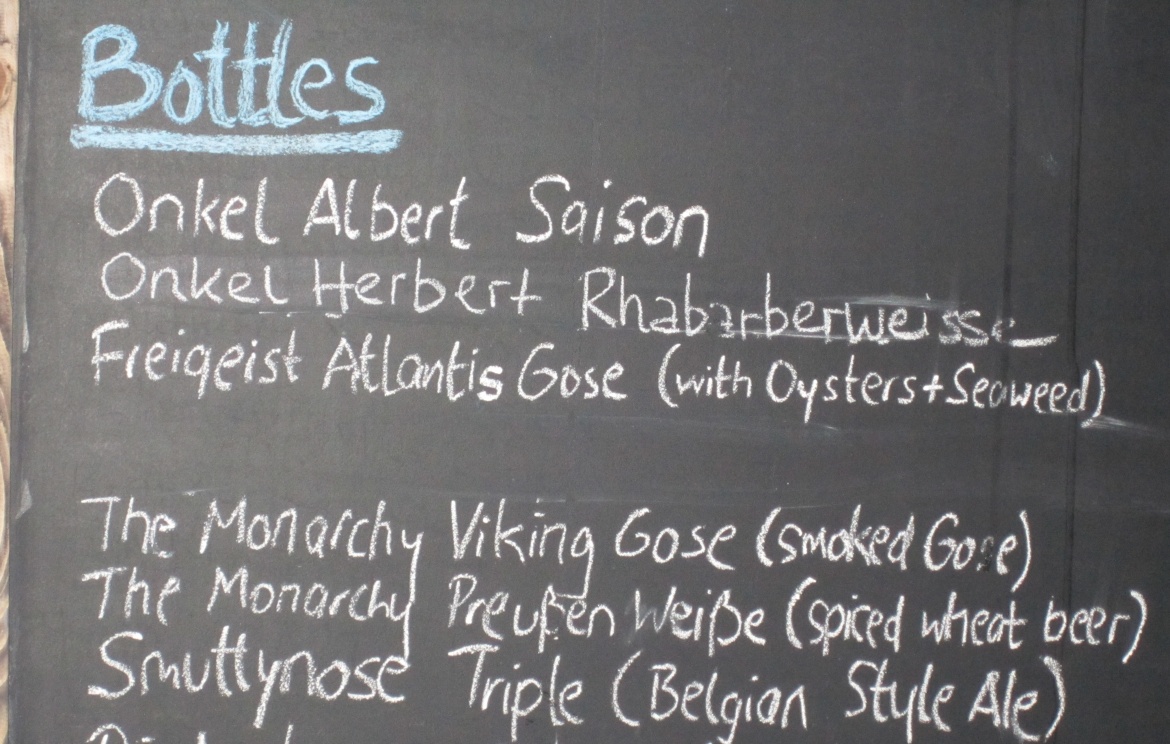 Bottles
Onkel Albert Saison
Onkel Herbert Rhabarberweisse
Freigeist Atlantis Gose (with Oysters+Seaweed)
The Monarchy Viking Gose (smoked Gose)
The Monarchy Preußen Weiße (spiced wheat beer)
Smuttynose Triple (Belgian Style Ale)